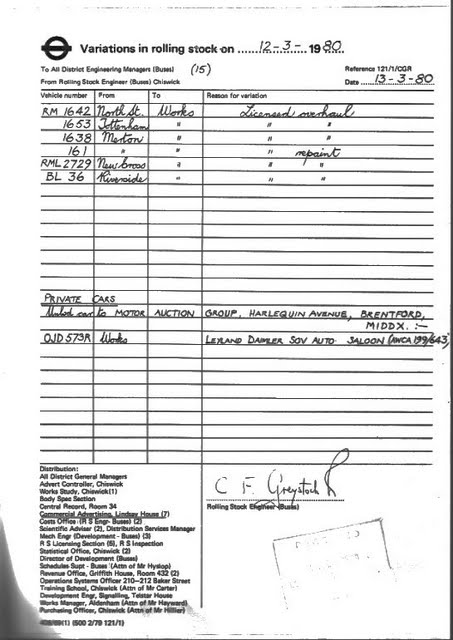 Variations in rolling stock on 12-3- 1980
To All District Engineering Managers (Buses) (15) Reference 121/1/CGR
From Rolling Stock Engineer (Buses) Chiswick Date 13-3-80
Vehicle number From To Reason for variation
RM 1642 North St. Works Licensed overhaul
1653 Tottenham " " "
1638 Merton " " "
161 " " " repaint
RML 2729 New Cross " " "
BL 36 Riverside " " "
PRIVATE CARS
car to MOTOR AUCTION GROUP, HARLEQUIN AVENUE, BRENTFORD,
MIDDX. :-
OJD 573R Works LEYLAND DAIMLER SOV AUTO SALOON (AWCA 199/643)
Distribution:
All District General Managers
Advert Controller, Chiswick
Works Study, Chiswick (1)
Body Spec Section
Central Record, Room 34
Commercial Advertising, Lindsay House (7)
Costs Office (R S Engr- Buses) (2)
Scientific Adviser (2), Distribution Services Manager
Mech Engr (Development - Buses) (3)
R S Licensing Section (5), R S Inspection
Statistical Office, Chiswick (2)
Director of Development (Buses)
Schedules Supt - Buses (Attn of Mr Hyslop)
Revenue Office, Griffith House, Room 432 (2)
Operations Systems Officer 210-212 Baker Street
Training School, Chiswick (Attn of Mr Carter)
Development Engr, Signalling, Telstar House
Works Manager, Aldenham (Attn of Mr Hayward)
Purchasing Officer, Chiswick (Attn of Mr Hillier)
(1) (500 2/79 121/1)
C F Greystock
Rolling Stock Engineer (Buses)